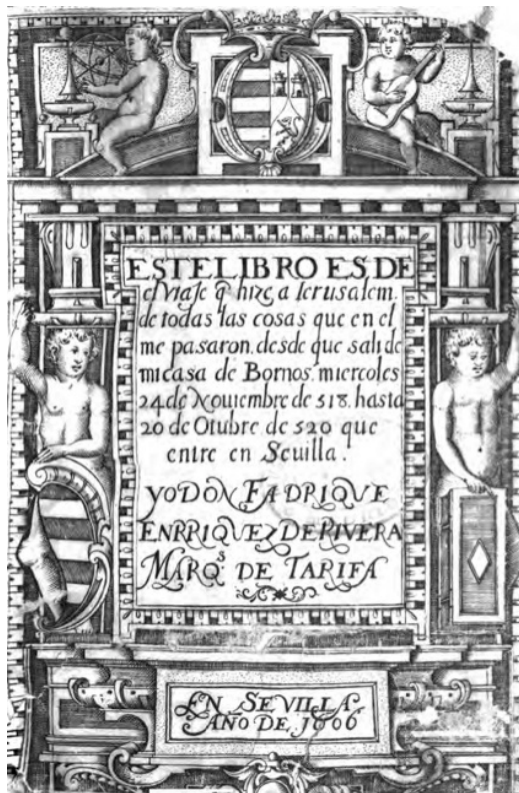 ESTE LIBRO ES DE
el viaje q̃ hize a Ierusalem.
de todas las cosas que en el
me pasaron. desde que sali de
mi casa de Bornos. miercoles
24 de Nouiembre de 518. hasta
20 de Otubre de 520 que
entre en Seuilla.
YO DON FADRIQUE
ENRRIQUEZ DE RIVERA
MARQ.S DE TARIFA
EN SEVILLA,
AÑO DE, 1606